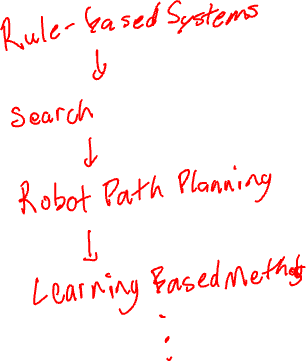 Rule-based Systems
Search
Robot Path Planning
Learning Based Methods